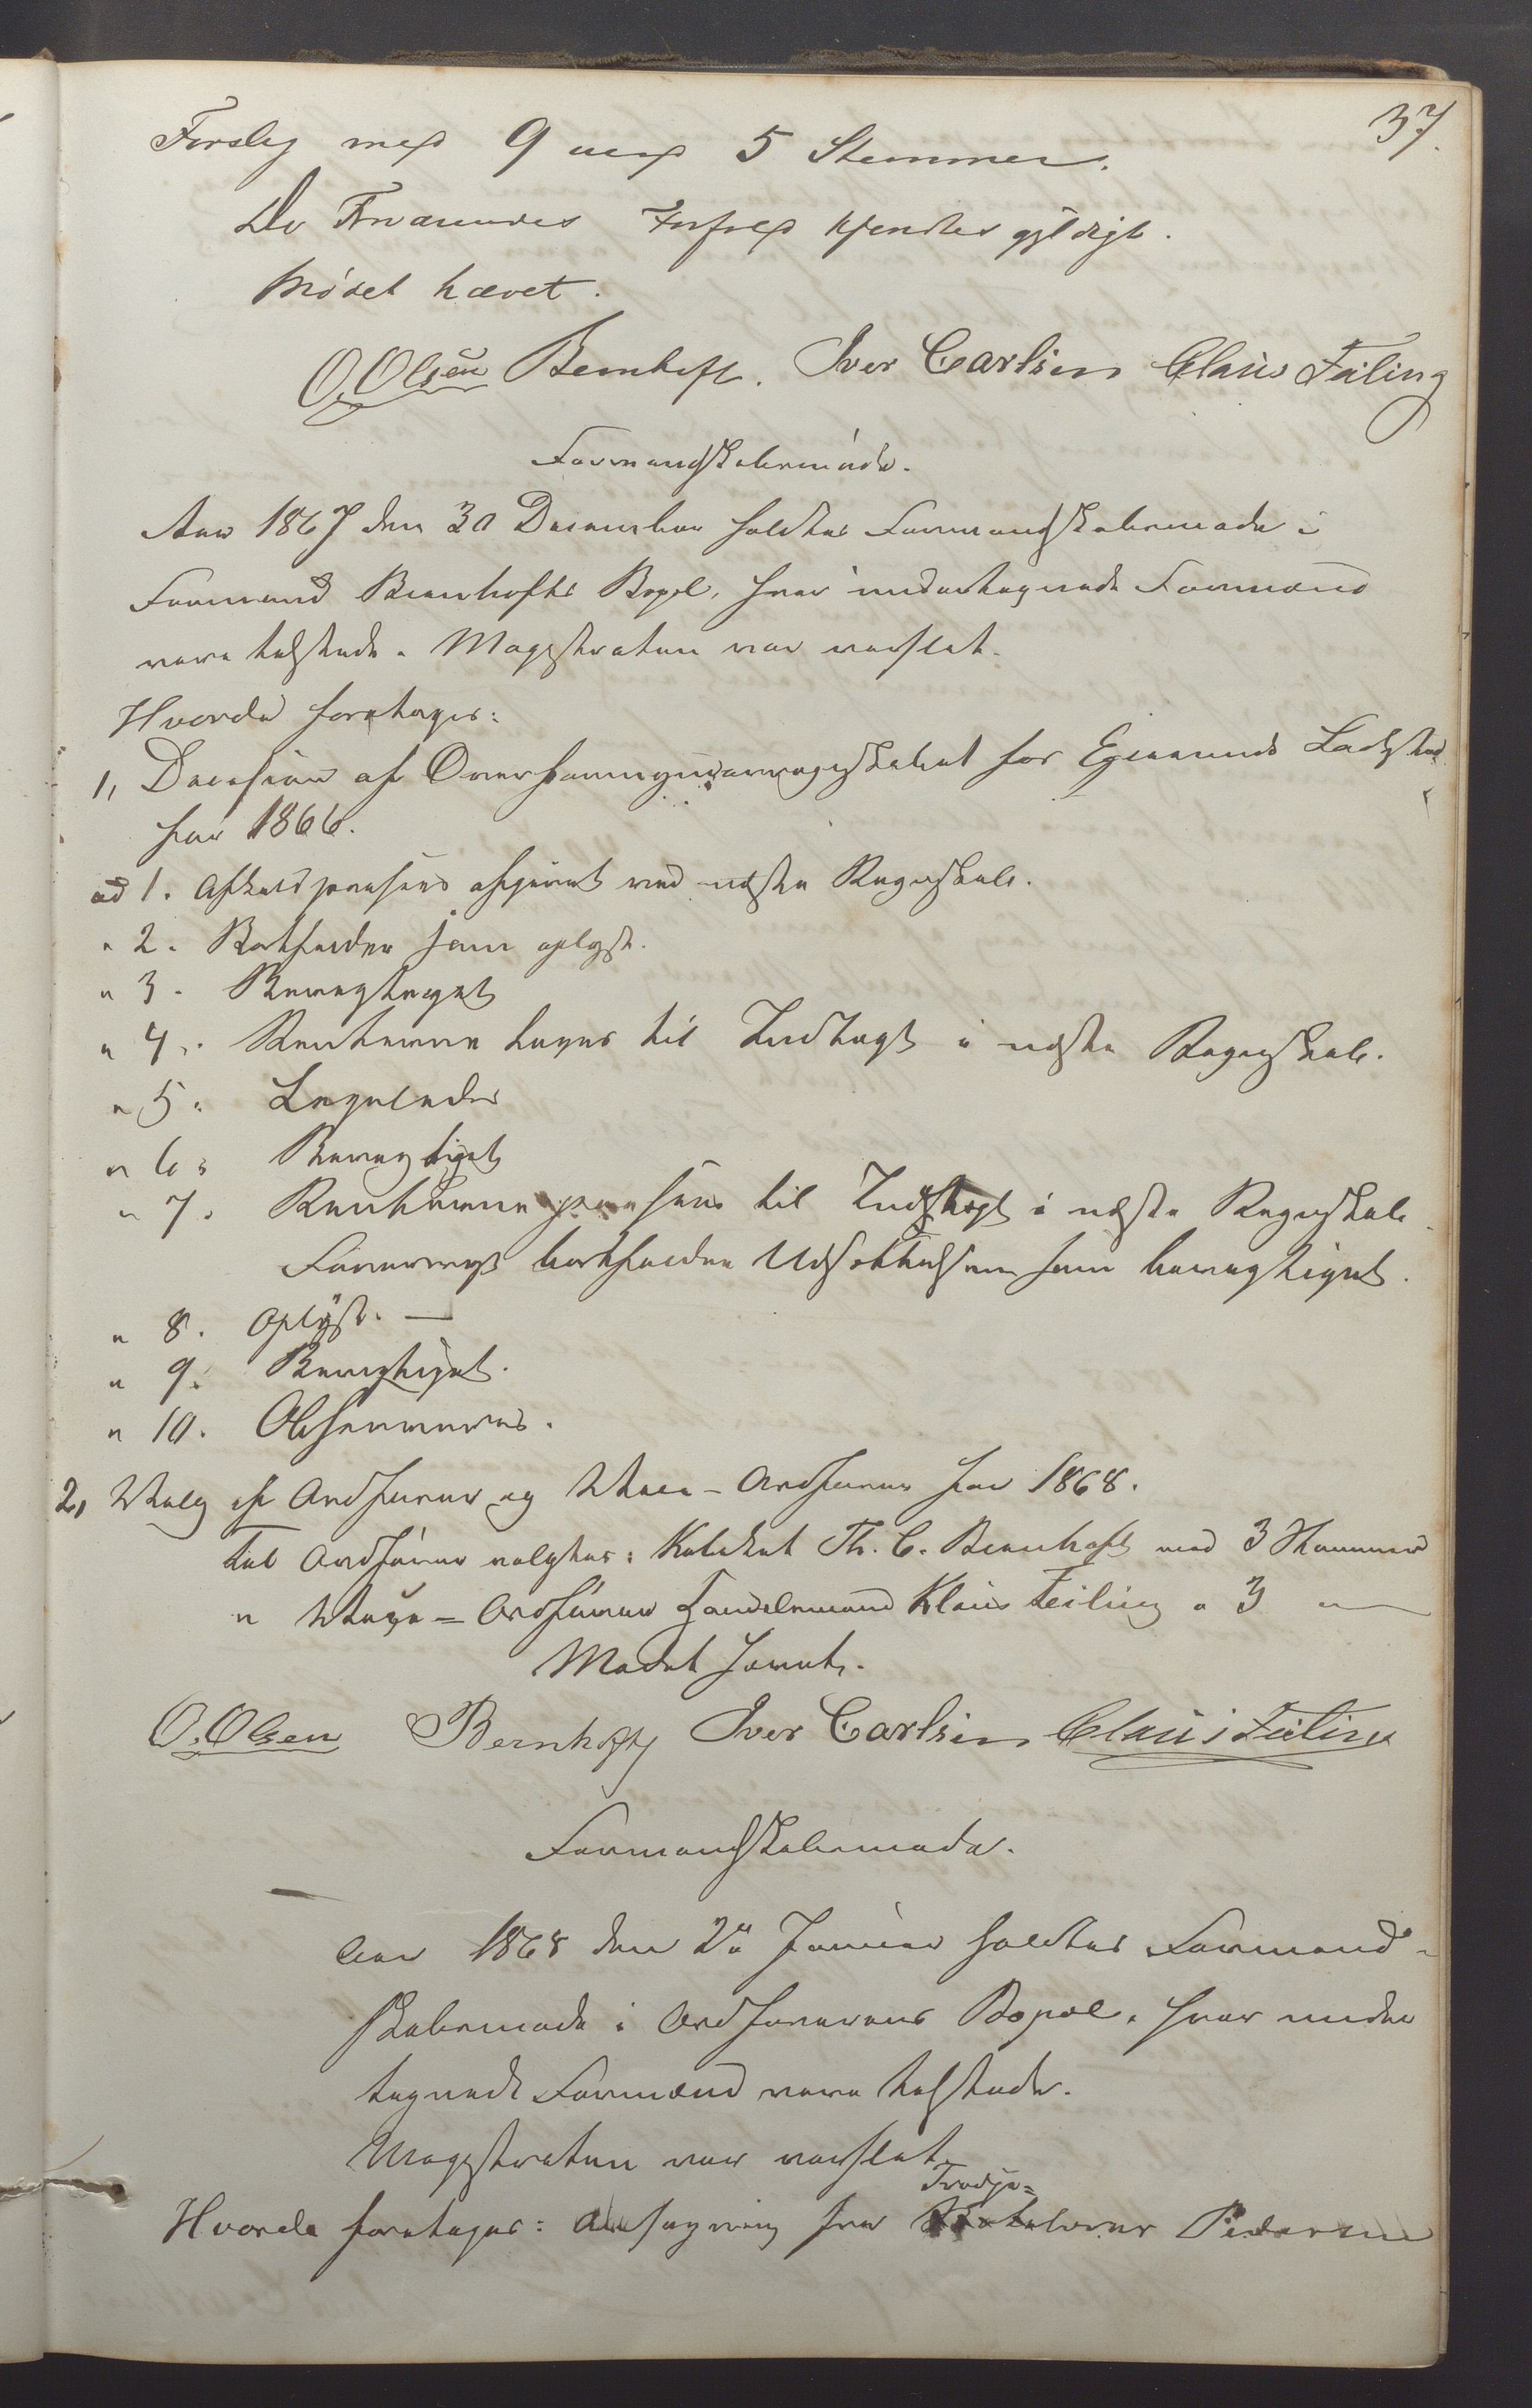 37.
Forslag med 9 mod 5 Stemmer.
De Fraværendes Forfald kjendtes gyldigt.
Mødet hævet.
O. Olsen Bernhoft. Iver Carlsen Claus Feiling
Formandskabsmøde.
Aar 1867 den 30 Desember holdtes Formandskabsmøde i
Formand Bernhofts Bopæl, hvor undertegnede Formænd
vare tilstede. Magistraten var varslet.
Hvorda foretoges:
1, Decision af Overformynderregnskabet for Egersunds Ladested
for 1866.
ad 1. Afkald afgivet ved næste Regnskab.
" 2. Bortfalder som oplyst.
" 3. Berigtiget
" 4. Renterne tages til Indtægt i næste Regnskab.
" 5. Legaledes
" 6. Berigtiget
" 7. Renterne til Indtægt i næste Regnskab
Forøvrigt bortfalder Udsættelsen som berigtiget.
" 8. Oplyst. —
" 9. Berigtiget.
" 10. Observeres.
2, Valg af Ordfører og Vice-Ordfører for 1868.
Til Ordfører valgtes: Kateket Th. C. Bernhoft med 3 Stemmer
" Vice-Ordfører Handelsmand Klaus Feiling " 3 "
Mødet hævet.
O. Olsen Bernhoft Iver Carlsen Claus Feiling
Formandskabsmøde.
Aar 1868 den 2den Januar holdtes Formand-
skabsmøde i Ordførerens Bopæl, hvor under
tegnede Formænd vare tilstede.
Magistraten var varslet.
Tredje=
Hvorda foretoges: Ansøgning fra Pedersen